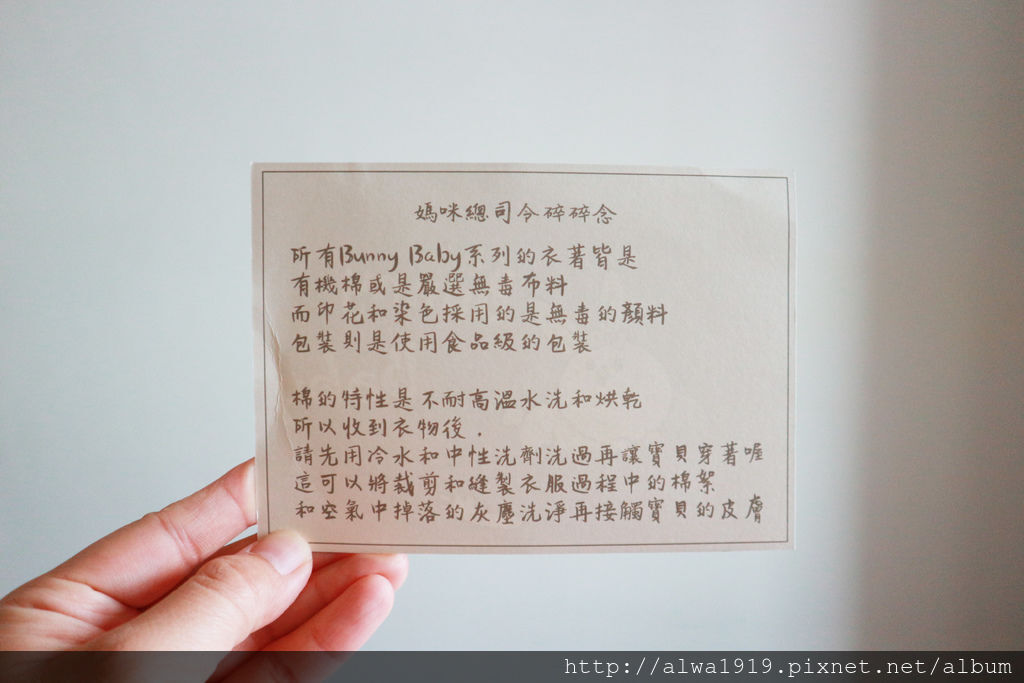 媽咪總司令碎碎念
所有Bunny Baby系列的衣著皆是
有機棉或是嚴選無毒布料
而印花和染色採用的是無毒的顏料
包裝則是使用食品級的包裝
棉的特性是不耐高溫水洗和烘乾
所以收到衣物後.
請先用冷水和中性洗劑洗過再讓寶貝穿著喔
這可以將裁剪和縫製衣服過程中的棉絮
和空氣中掉落的灰塵洗淨再接觸寶貝的皮膚
http://alwa1919.pixnet.net/album